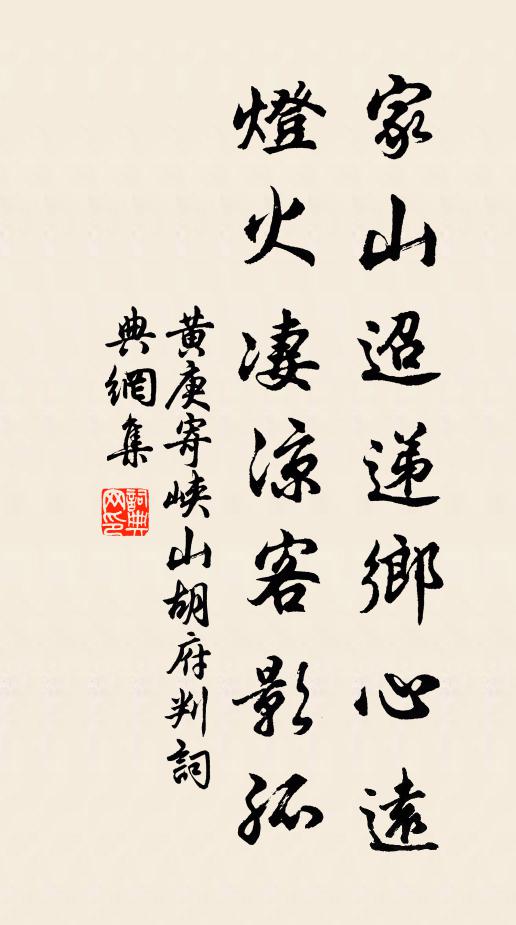 家山迢遞鄉心遠
燈火淒涼客影孤
黄庚寄峽山胡府判詞
典網集
詞典网印